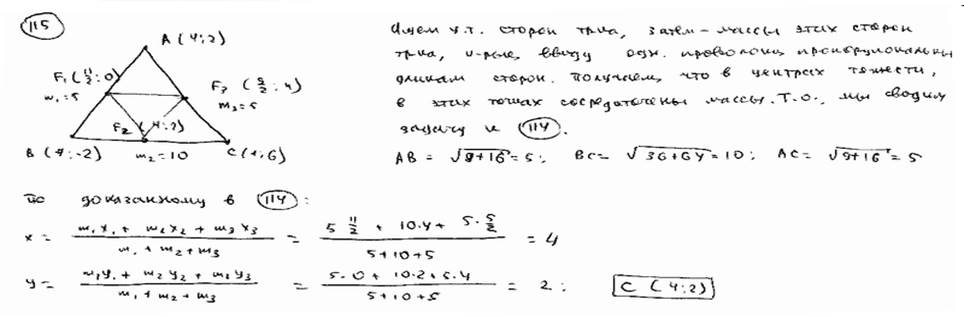 115
A (4; 2)
F₁ (11/2; 0)
m₁ = 5
F₃ (5/2; 4)
m₃ = 5
F₂ (4; 2)
B (7; -2)
m₂ = 10
C (1; 6)
Ищем ц.т. сторон тр-ка, затем - массы этих сторон
тр-ка, к-рые, ввиду одн. проволоки пропорциональны
длинам сторон. Получаем, что в центрах тяжести,
в этих точках сосредоточены массы. Т.О., мы сводим
задачу к 114.
AB = √9+16 = 5; BC = √36+64 = 10; AC = √9+16 = 5
По доказанному в 114:
x = (m₁x₁ + m₂x₂ + m₃x₃)/(m₁ + m₂ + m₃) = (5 11/2 + 10·4 + 5·5/2)/(5+10+5) = 4
y = (m₁y₁ + m₂y₂ + m₃y₃)/(m₁ + m₂ + m₃) = (5·0 + 10·2 + 5·4)/(5+10+5) = 2;
C (4; 2)